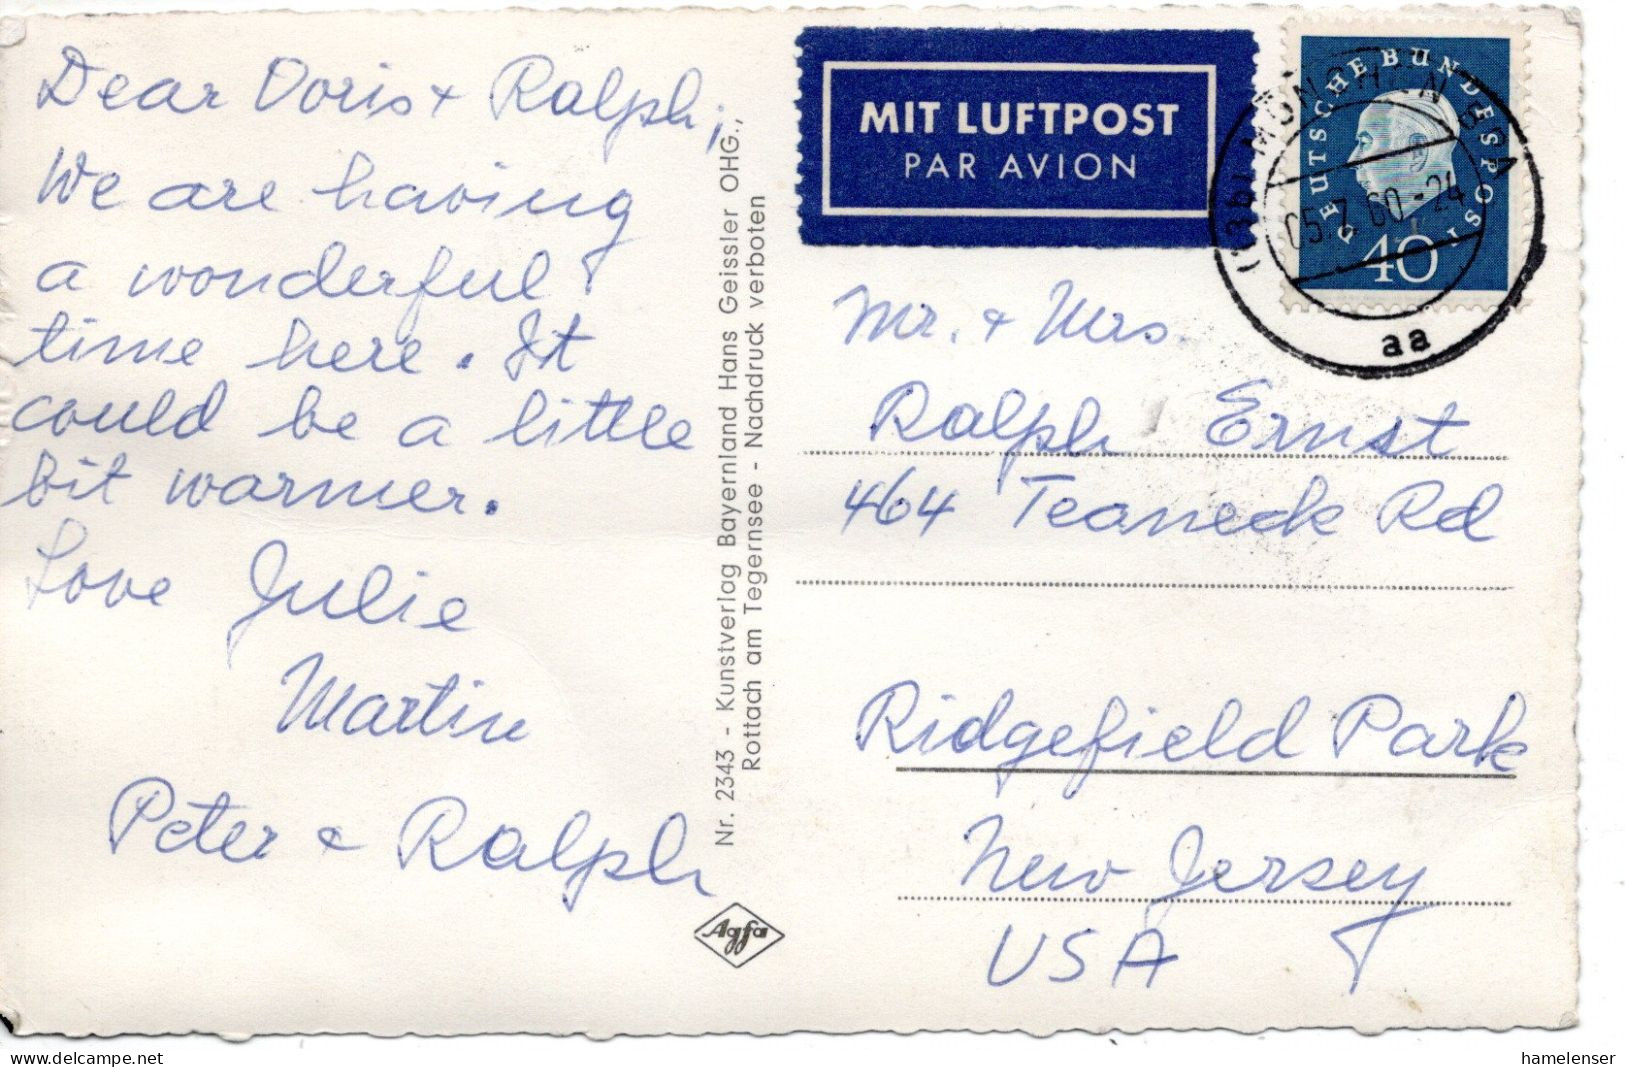 Dear Doris + Ralph,
We are having
a wonderful
time here. It
could be a little
bit warmer.
Love Julie
Martin
Peter + Ralph
Nr. 2343 - Kunstverlag Bayernland Hans Geissler OHG.,
Rottach am Tegernsee - Nachdruck verboten
Agfa
MIT LUFTPOST
PAR AVION
DEUTSCHE BUNDESPOST
40
(13b) MÜNCHEN BPA
05.7.60.-24
aa
Mr. + Mrs.
Ralph Ernst
464 Teaneck Rd
Ridgefield Park
New Jersey
USA
hamelenser
www.delcampe.net